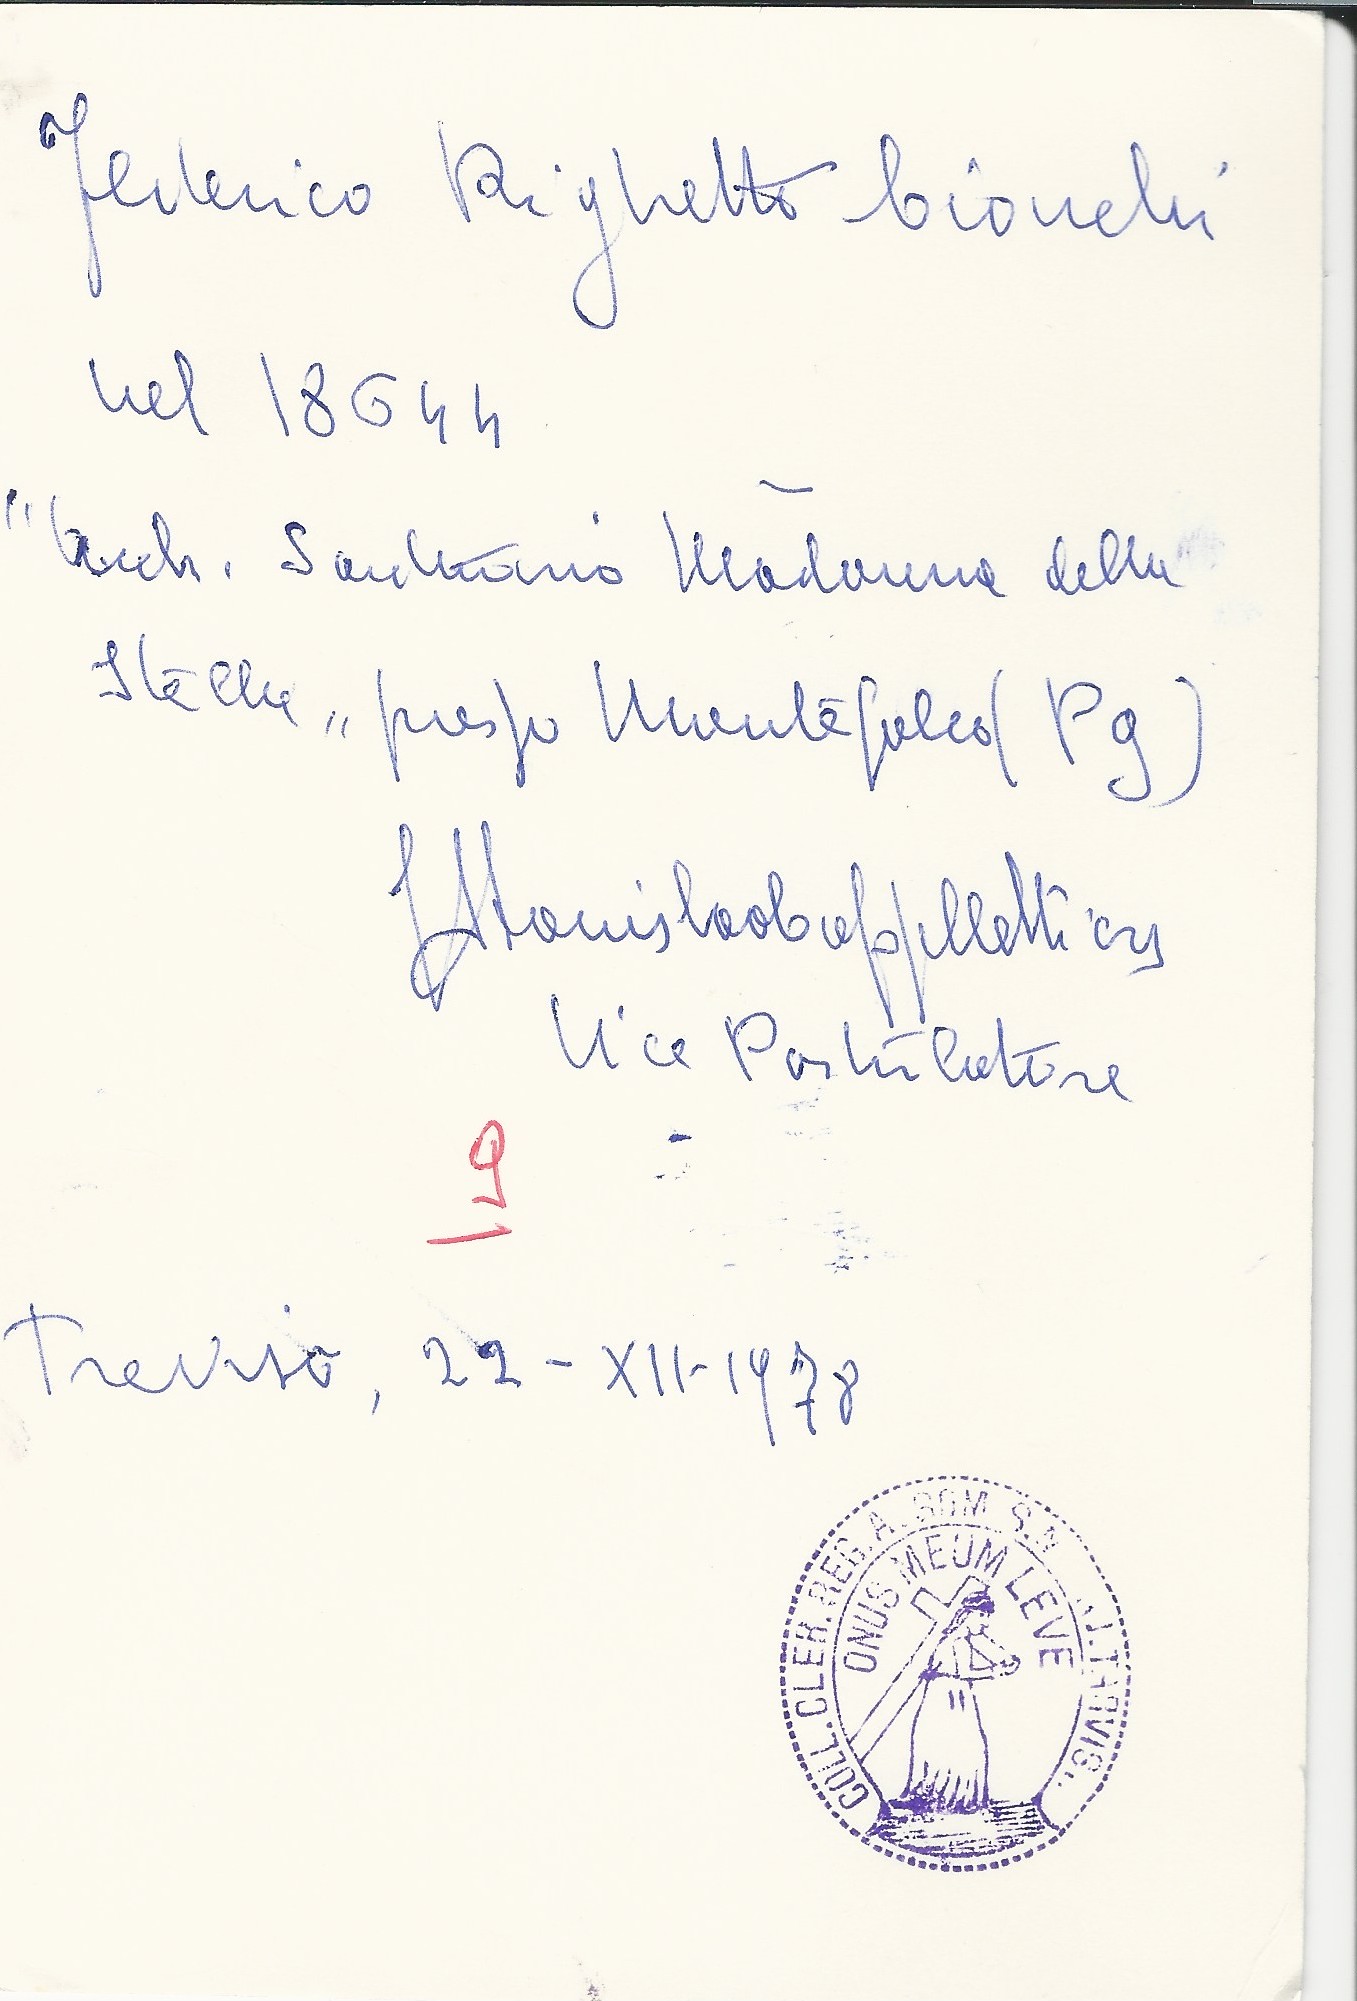 Federico Righetto Cionchi
nel 18644
"Arch. Santuario Madonna della
Stella" presso Montefalco (Pg)
Stanislao Cappelletti crs
Vice Postulatore
19
Treviso, 22-XII-1978
COLL. CLER. REG. A. SOM. S. TARVIS.
ONUS MEUM LEVE